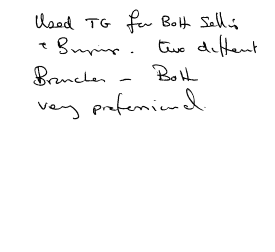 Used TG for Both Selling
+ Buying. two different
Branches - Both
very professional.